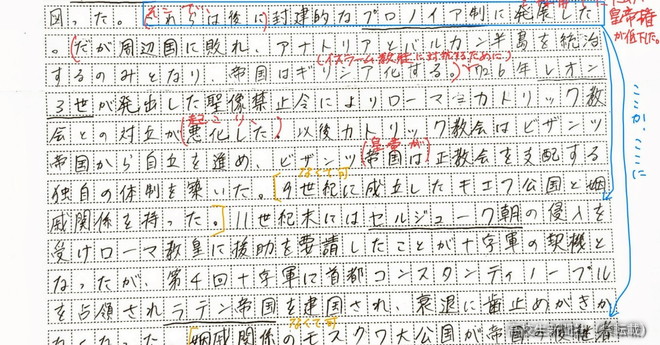 図った。(これらは後に)封建的なプロノイア制に発展した
皇帝権
が低下した。
。(だが周辺国に敗れ、アナトリアとバルカン半島を統治
するのみとなり、帝国はギリシア化する。)726年レオン
(イスラーム教徒に対抗するために)
3世が発出した聖像禁止令によりローマ=カトリック教
会との対立が(悪化した。以後カトリック教会はビザンツ
起こり、
帝国から自立を進め、ビザンツ(帝国は)正教会を支配する
皇帝が
独自の体制を築いた。[9世紀に成立したキエフ公国と姻
なくて可
戚関係を持った。]11世紀末にはセルジューク朝の侵入を
受けローマ教皇に援助を要請したことが十字軍の契機と
なったが、第4回十字軍に首都コンスタンティノープル
を占領されラテン帝国を建国され、衰退に歯止めがきか
なくなった。[姻戚関係のモスクワ大公国が帝国の後継者
なくて可
ここが、ここに